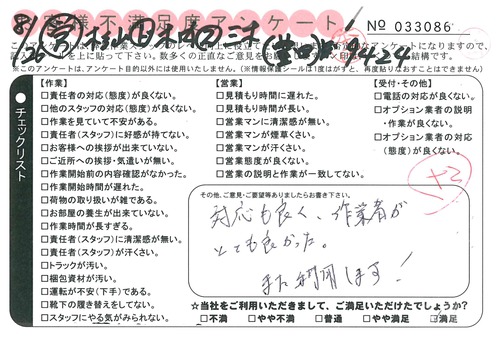 お客様不満足度アンケート
№ 033086
8/26
424
※このアンケートは、アンケート目的以外には使用いたしません。(※情報保護シールは1度はがすと、再度貼りなおすことはできません)
チェックリスト
【作業】
□責任者の対応(態度)が良くない。
□他のスタッフの対応(態度)が良くない。
□作業を見ていて不安がある。
□責任者(スタッフ)に好感が持てない。
□お客様への挨拶が出来ていない。
□ご近所への挨拶・気遣いが無い。
□作業開始前の内容確認がなかった。
□作業開始時間が遅れた。
□荷物の取り扱いが雑である。
□お部屋の養生が出来ていない。
□作業時間が長すぎる。
□責任者(スタッフ)に清潔感が無い。
□責任者(スタッフ)が汗くさい。
□トラックが汚い。
□梱包資材が汚い。
□運転が不安(下手)である。
□靴下の履き替えをしてない。
□スタッフにやる気がみられない。
【営業】
□見積もり時間に遅れた。
□見積もり時間が長い。
□営業マンに清潔感が無い。
□営業マンが煙草くさい。
□営業マンが汗くさい。
□営業態度が良くない。
□営業の説明と作業が一致してない。
【受付・その他】
□電話の対応が良くない。
□オプション業者の説明
・作業が良くない。
□オプション業者の対応
(態度)が良くない。
+2
その他、ご意見・ご要望等ありましたらお書き下さい。
対応も良く、作業者が
とても良かった。
また利用します!
☆当社をご利用いただきまして、ご満足いただけたでしょうか?
□不満 □やや不満 □普通 □やや満足 □満足